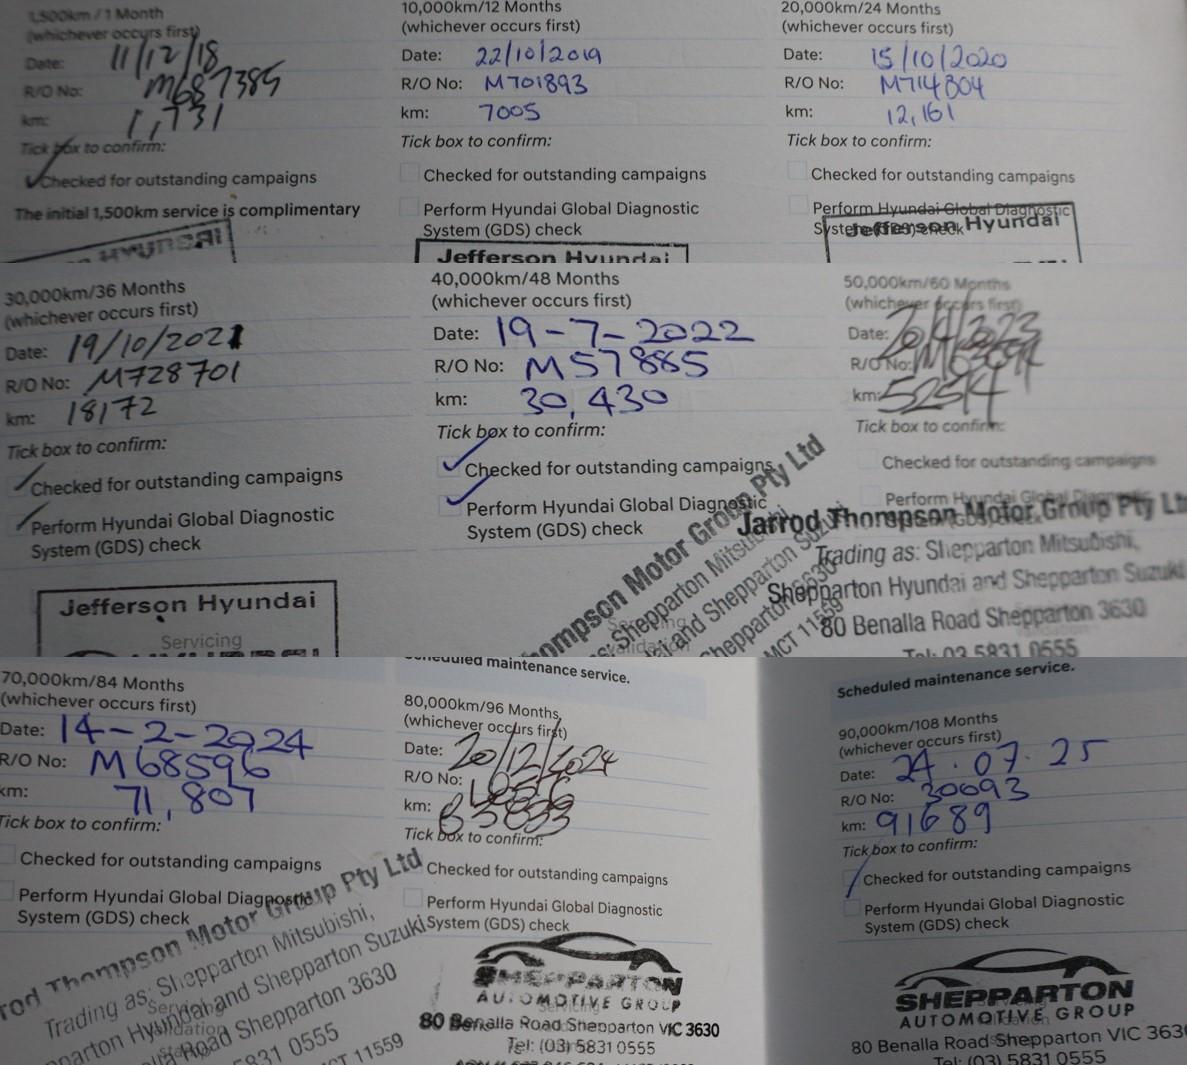 1,500km / 1 Month
(whichever occurs first)
Date: 11/12/18
R/O No: M687385
km: 1,731
Tick box to confirm:
Checked for outstanding campaigns
The initial 1,500km service is complimentary
HYUNDAI
10,000km/12 Months
(whichever occurs first)
Date: 22/10/2019
R/O No: M701893
km: 7005
Tick box to confirm:
Checked for outstanding campaigns
Perform Hyundai Global Diagnostic
System (GDS) check
Jefferson Hyundai
20,000km/24 Months
(whichever occurs first)
Date: 15/10/2020
R/O No: M714804
km: 12,161
Tick box to confirm:
Checked for outstanding campaigns
Perform Hyundai Global Diagnostic
System (GDS) check
Jefferson Hyundai
30,000km/36 Months
(whichever occurs first)
Date: 19/10/2021
R/O No: M728701
km: 18172
Tick box to confirm:
Checked for outstanding campaigns
Perform Hyundai Global Diagnostic
System (GDS) check
Jefferson Hyundai
Servicing
40,000km/48 Months
(whichever occurs first)
Date: 19-7-2022
R/O No: M57885
km: 30,430
Tick box to confirm:
Checked for outstanding campaigns
Perform Hyundai Global Diagnostic
System (GDS) check
Thompson Motor Group Pty Ltd
Shepparton Mitsubishi
and Shepparton Suzuki
Shepparton 3630
MCT 11559
50,000km/60 Months
(whichever occurs first)
Date:
R/O No:
km:
Tick box to confirm:
Checked for outstanding campaigns
Perform Hyundai Global Diagnostic
Jarrod Thompson Motor Group Pty Ltd
Trading as: Shepparton Mitsubishi,
Shepparton Hyundai and Shepparton Suzuki
80 Benalla Road Shepparton 3630
Tel: 03 5831 0555
70,000km/84 Months
(whichever occurs first)
Date: 14-2-2024
R/O No: M68596
km: 71,807
Tick box to confirm:
Checked for outstanding campaigns
Perform Hyundai Global Diagnostic
System (GDS) check
rod Thompson Motor Group Pty Ltd
Trading as: Shepparton Mitsubishi,
pparton Hyundai and Shepparton Suzuki
Road Shepparton 3630
5831 0555
MCT 11559
scheduled maintenance service.
80,000km/96 Months
(whichever occurs first)
Date: 20/12/2024
R/O No:
km: 83833
Tick box to confirm:
Checked for outstanding campaigns
Perform Hyundai Global Diagnostic
System (GDS) check
SHEPPARTON
AUTOMOTIVE GROUP
80 Benalla Road Shepparton VIC 3630
Tel: (03) 5831 0555
Scheduled maintenance service.
90,000km/108 Months
(whichever occurs first)
Date: 24.07.25
R/O No: 30693
km: 91689
Tick box to confirm:
Checked for outstanding campaigns
Perform Hyundai Global Diagnostic
System (GDS) check
SHEPPARTON
AUTOMOTIVE GROUP
80 Benalla Road Shepparton VIC 3630
Tel: (03) 5831 0555